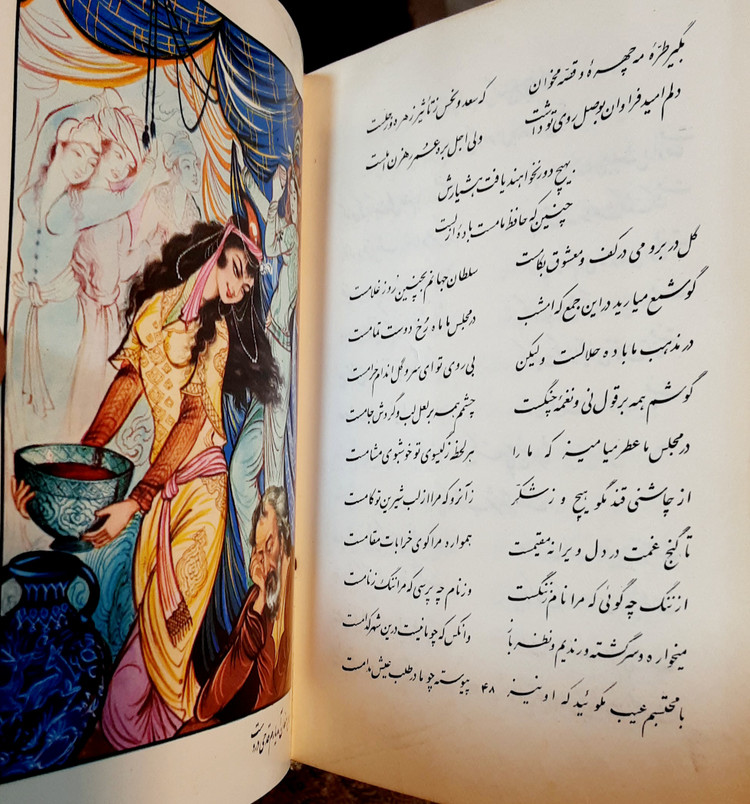 بگیر طرّهٔ مه چهرهٔ و قصّه مخوان که سعد و نحس ز تاثیر زهره و زحلست
دلم امید فراوان بوصل روی تو داشت ولی اجل بره عمر رهزن املست
بهیچ دور نخواهند یافت هشیارش
چنین که حافظ ما مست بادهٔ ازلست
گل در بر و می در کف و معشوق بکامست سلطان جهانم بچنین روز غلامست
گو شمع میارید در این جمع که امشب در مجلس ما ماه رخ دوست تمامست
در مذهب ما باده حلالست ولیکن بی روی تو ای سرو گل اندام حرامست
گوشم همه بر قول نی و نغمه چنگست چشمم همه بر لعل لب و گردش جامست
در مجلس ما عطر میامیز که ما را هر لحظه ز گیسوی تو خوشبوی مشامست
از چاشنی قند مگو هیچ و ز شکّر زآنرو که مرا از لب شیرین تو کامست
تا گنج غمت در دل ویرانه مقیمست همواره مرا کوی خرابات مقامست
از ننگ چه گوئی که مرا نام ز ننگست وز نام چه پرسی که مرا ننگ ز نامست
میخواره و سرگشته و رندیم و نظرباز وانکس که چو ما نیست درین شهر کدامست
با محتسبم عیب مگوئید که او نیز ۴۸ پیوسته چو ما در طلب عیش مدامست